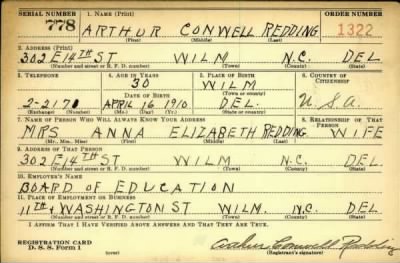 SERIAL NUMBER 1. NAME (Print) ORDER NUMBER
778 ARTHUR CONWELL REDDING 1322
(First) (Middle) (Last)
2. ADDRESS (Print)
302 E 14TH ST WILM N.C. DEL
(Number and street or R. F. D. number) (Town) (County) (State)
3. TELEPHONE 4. AGE IN YEARS 5. PLACE OF BIRTH 6. COUNTRY OF CITIZENSHIP
30 WILM
DATE OF BIRTH (Town or county)
2-2171 APRIL 16 1910 DEL. U.S.A.
(Exchange) (Number) (Mo.) (Day) (Yr.) (State or country)
7. NAME OF PERSON WHO WILL ALWAYS KNOW YOUR ADDRESS 8. RELATIONSHIP OF THAT PERSON
MRS ANNA ELIZABETH REDDING WIFE
(Mr., Mrs., Miss) (First) (Middle) (Last)
9. ADDRESS OF THAT PERSON
302 E 14TH ST WILM N.C. DEL
(Number and street or R. F. D. number) (Town) (County) (State)
10. EMPLOYER'S NAME
BOARD OF EDUCATION
11. PLACE OF EMPLOYMENT OR BUSINESS
11TH & WASHINGTON ST WILM. N.C. DEL
(Number and street or R. F. D. number) (Town) (County) (State)
I AFFIRM THAT I HAVE VERIFIED ABOVE ANSWERS AND THAT THEY ARE TRUE.
REGISTRATION CARD
D. S. S. Form 1 (over) Arthur Conwell Redding
(Registrant's signature)